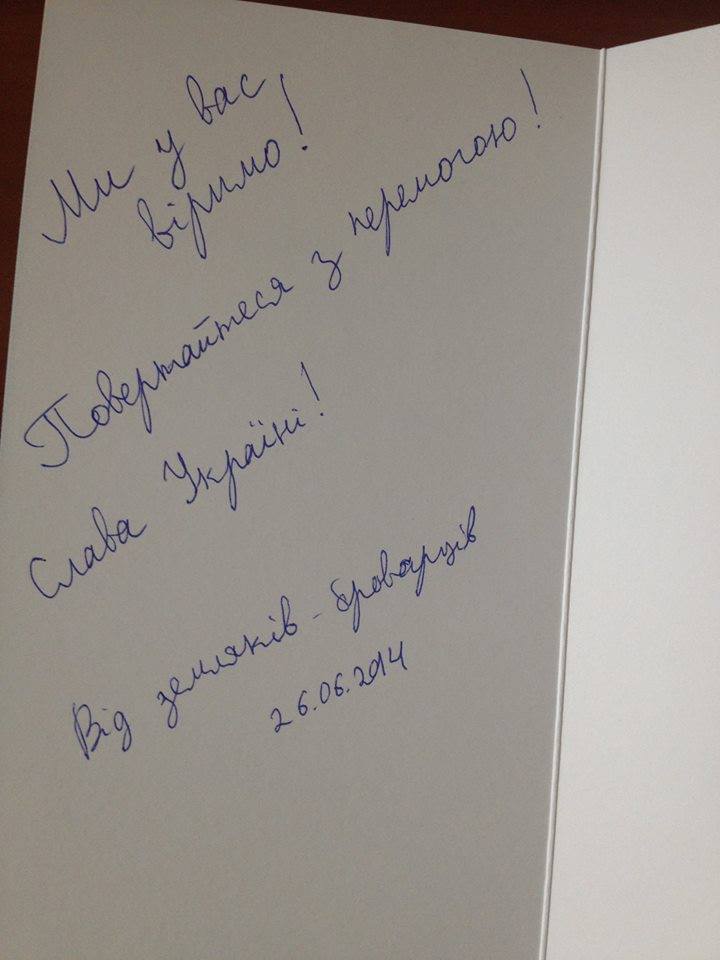 Ми у вас
віримо!
Повертайтеся з перемогою!
Слава Україні!
Від земляків - броварців
26.06.2014